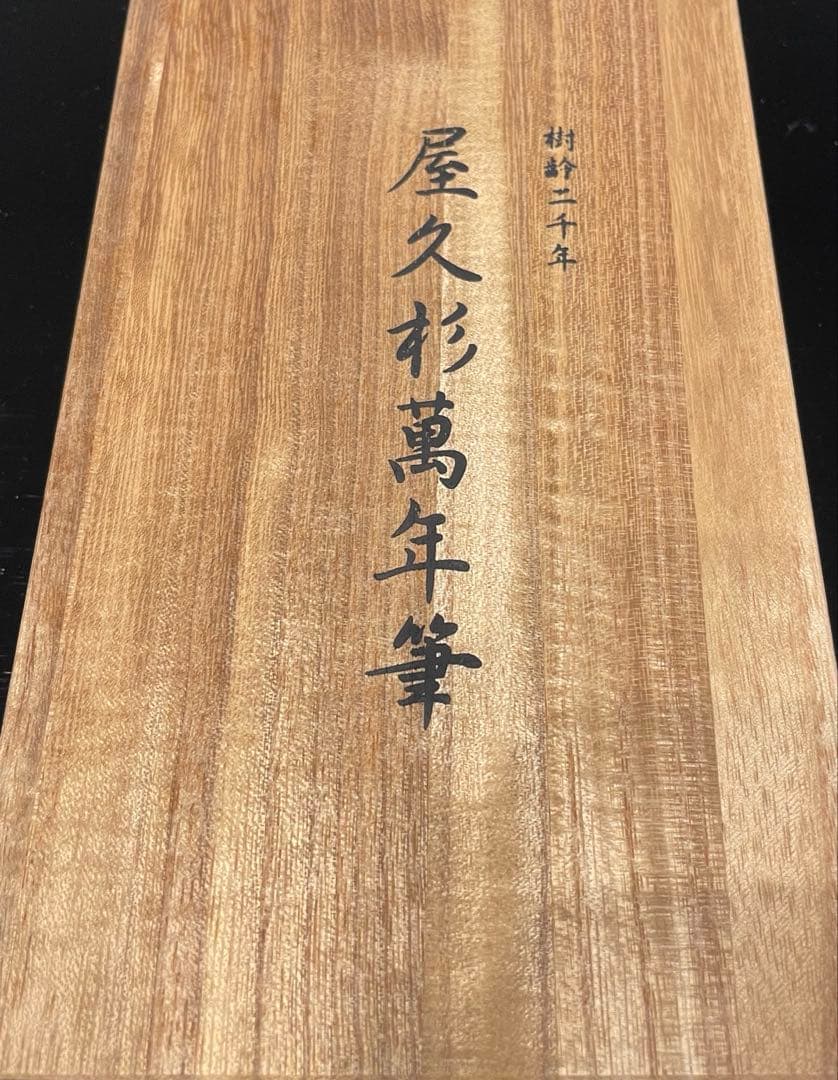 樹齢二千年
屋久杉萬年筆